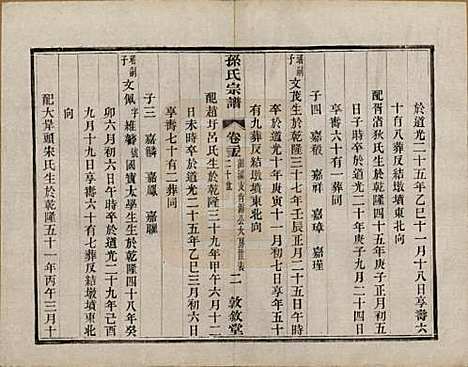 於道光二十五年乙巳十一月十八日享壽六
十有八葬反結墩墳東北向
配胥渚狄氏生於乾隆四十五年庚子正月初五
日子時卒於道光二十年庚子九月二十四日
享壽六十有一葬同
子四 嘉穀 嘉祥 嘉璋 嘉瑾
瑤嗣子 文茂生於乾隆三十七年壬辰正月二十五日午
時卒於道光十年庚寅十一月初七日享年五十
有九葬反結墩墳東北向
孫氏宗譜 卷五 二 敦敘堂
配趙圩呂氏生於乾隆三十九年甲午六月十二
日未時卒於道光二十五年乙巳三月初六日
享壽七十有二葬同
子三 嘉麟 嘉鳳 嘉驪
文佩 字 號 國寶太學生生於乾隆四十八年癸
卯六月初六日午時卒於道光二十九年己酉
九月十九日享壽六十有七葬反結墩墳東北
向
配大昇頭朱氏生於乾隆五十一年丙午三月十